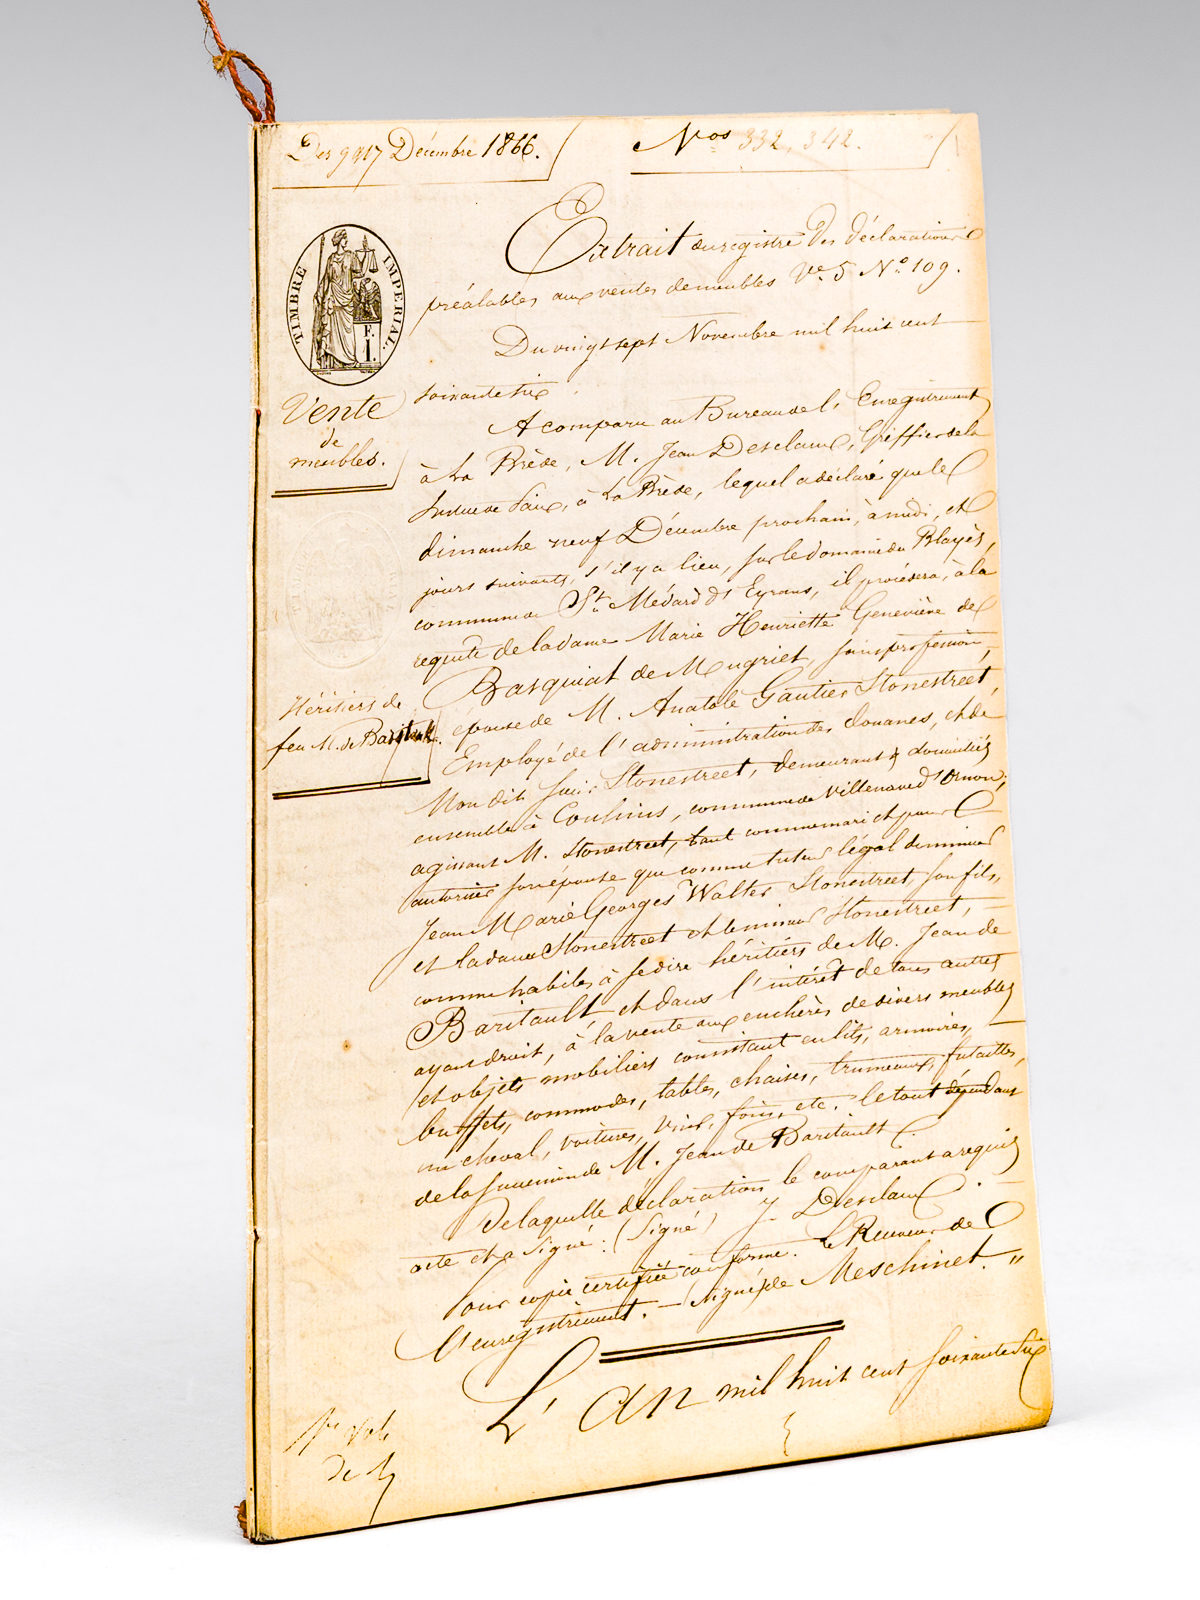 Des 9 et 17 Décembre 1866.
Nos 332, 342.
TIMBRE IMPERIAL.
F.
I.
Vente
de
meubles.
Héritiers de
feu M. de Baritault.
Extrait du registre des déclarations
préalables aux ventes de meubles Ve. 5 No. 109.
Du vingt sept Novembre mil huit cent
soixante six.
A comparu au Bureau de l'Enregistrement
à La Brède, M. Jean Desclaux, Greffier de la
Justice de Paix, à La Brède, lequel a déclaré que le
dimanche neuf Décembre prochain, à midi, et
jours suivants, s'il y a lieu, sur le domaine du Blayès,
commune de St. Médard d'Eyrans, il procédera, à la
requête de la dame Marie Henriette Geneviève de
Basquiat de Mugriet, sans profession,
épouse de M. Anatole Gautier Stonestreet,
Employé de l'administration des douanes, et de
Mon dit sieur Stonestreet, demeurant et domiciliés
ensemble à Couhins, commune de Villenave d'Ornon;
agissant M. Stonestreet, tant comme mari et pour
autoriser son épouse que comme tuteur légal du mineur
Jean Marie Georges Walter Stonestreet, son fils,
et la dame Stonestreet et le mineur Stonestreet,
comme habiles à se dire héritiers de M. Jean de
Baritault, et dans l'intérêt de tous autres
ayant droit, à la vente aux enchères de divers meubles
et objets mobiliers consistant en lits, armoires,
buffets, commodes, tables, chaises, trumeaux, futailles,
un cheval, voitures, vins, foins, etc. le tout dépendant
de la succession de M. Jean de Baritault.
De laquelle déclaration le comparant a requis
acte et a signé: (Signé) J. Desclaux.
Pour copie certifiée conforme. Le Receveur de
l'enregistrement. — Signé) de Meschinet. "
L'an mil huit cent soixante six